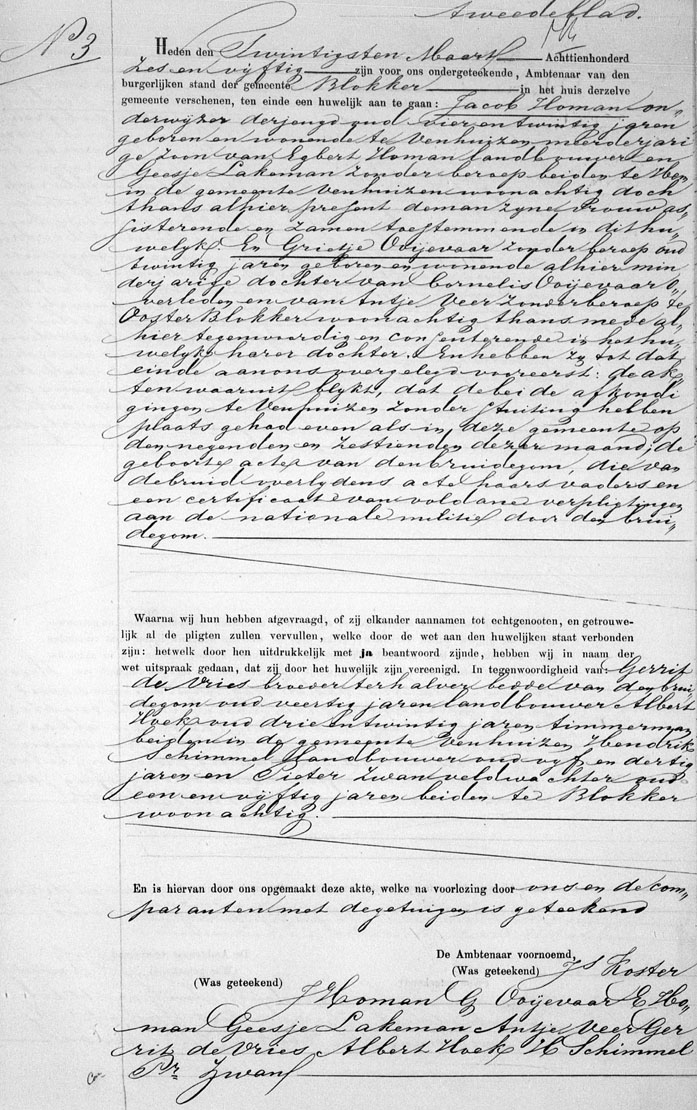 tweede blad.
N 3
Heden den Twintigsten Maart Achttienhonderd
Zes en vijftig zijn voor ons ondergeteekende, Ambtenaar van den
burgerlijken stand der gemeente Blokker in het huis derzelve
gemeente verschenen, ten einde een huwelijk aan te gaan: Jacob Homan on„
derwijzer der jeugd oud vier en twintig jaren
geboren en wonende te Venhuizen meerderjari
ge Zoon van Egbert Homan landbouwer en
Geesje Lakeman zonder beroep beiden te Hem
in de gemeente Venhuizen woonachtig doch
thans alhier present de man zyne vrouw as„
sisterende en zamen toestemmende in dit hu„
welyk. En Grietje Ooijevaar zonder beroep oud
twintig jaren geboren en wonende alhier min
derjarige dochter van Cornelis Ooijevaar o„
verleden en van Antje Veer zonder beroep te
Ooster Blokker woonachtig thans mede al„
hier tegenwoordig en consenterende in het hu„
welyk harer dochter. En hebben zy tot dat
einde aan ons overgelegd vooreerst: de ak„
ten waaruit blykt, dat de beide afkondi
gingen te Venhuizen zonder stuiting hebben
plaats gehad even als in deze gemeente op
den negenden en zestienden dezer maand; de
geboorte acte van den bruidegom, die van
de bruid overlydens acte haars vaders en
een certificaat van voldane verpligtingen
aan de nationale militie door den brui„
degom.
Waarna wij hun hebben afgevraagd, of zij elkander aannamen tot echtgenooten, en getrouwe-
lijk al de pligten zullen vervullen, welke door de wet aan den huwelijken staat verbonden
zijn: hetwelk door hen uitdrukkelijk met ja beantwoord zijnde, hebben wij in naam der
wet uitspraak gedaan, dat zij door het huwelijk zijn vereenigd. In tegenwoordigheid van Gerrit
de Vries broeder ter halver bedde van den brui„
degom oud veertig jaren landbouwer Albert
Hoek oud drie en twintig jaren timmerman
beiden in de gemeente Venhuizen Hendrik
Schimmel Landbouwer oud vyf en dertig
jaren en Pieter Zwan veldwachter oud
een en vijftig jaren beiden te Blokker
woonachtig.
En is hiervan door ons opgemaakt deze akte, welke na voorlezing door ons en de com„
paranten met de getuigen is geteekend
De Ambtenaar voornoemd,
(Was geteekend) JS Koster
(Was geteekend)
J Homan G Ooijevaar E Ho„
man Geesje Lakeman Antje Veer Ger
rit de Vries Albert Hoek H Schimmel
Pr Zwan